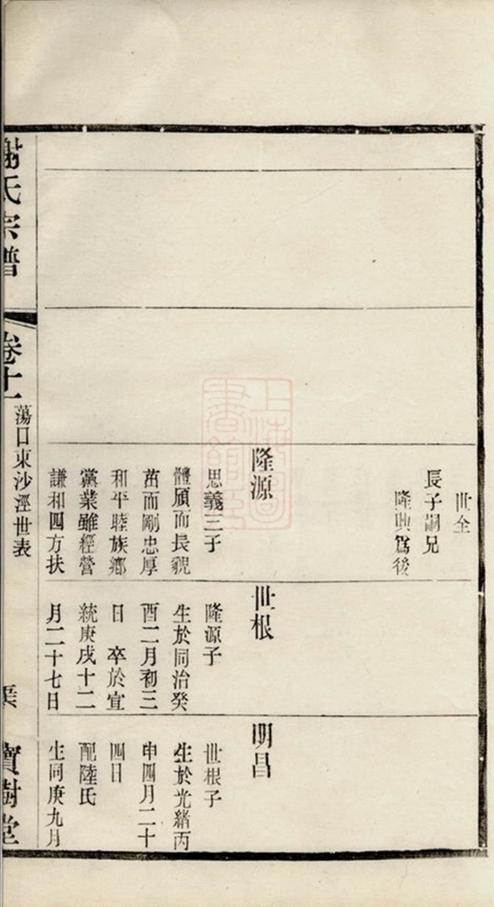 世全
長子嗣兄
隆 爲後
隆源
思義三子
體頎而長貌
茁而剛忠厚
和平睦族鄉
黨業雖經營
謙和四方扶
世根
隆源子
生於同治癸
酉二月初三
日 卒於宣
統庚戌十二
月二十七日
明昌
世根子
生於光緒丙
申四月二十
四日
配陸氏
生同庚九月
謝氏宗譜
卷十一
蕩口東沙涇世表
寶樹堂
上海圖書館藏